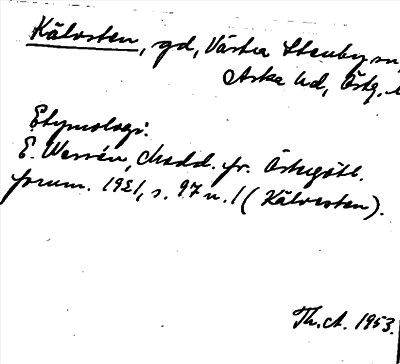 Kälvsten, gd, Västra Stenby sn
Aska hd, Östg. l
Etymologi:
E. Wessén, Medd. fr. Östergötl.
fornm. 1921, s. 97 n. 1 (Kälvesten).
Th. A. 1953.